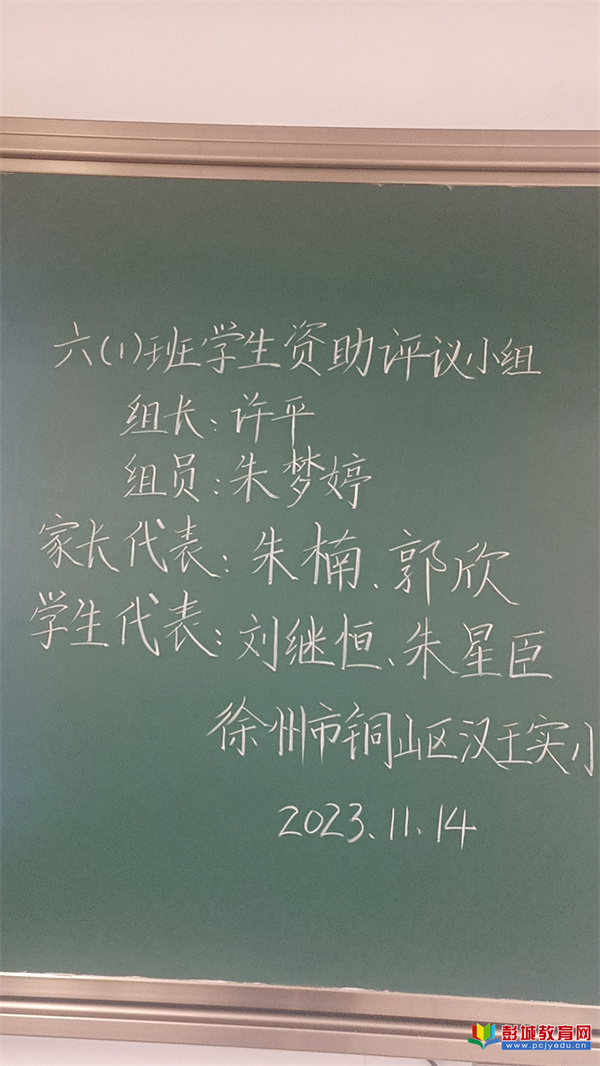 六(1)班学生资助评议小组
组长:许平
组员:朱梦婷
家长代表:朱楠、郭欣
学生代表:刘继恒、朱星臣
徐州市铜山区汉王实小
2023.11.14
彭城教育网
www.pcjyedu.cn